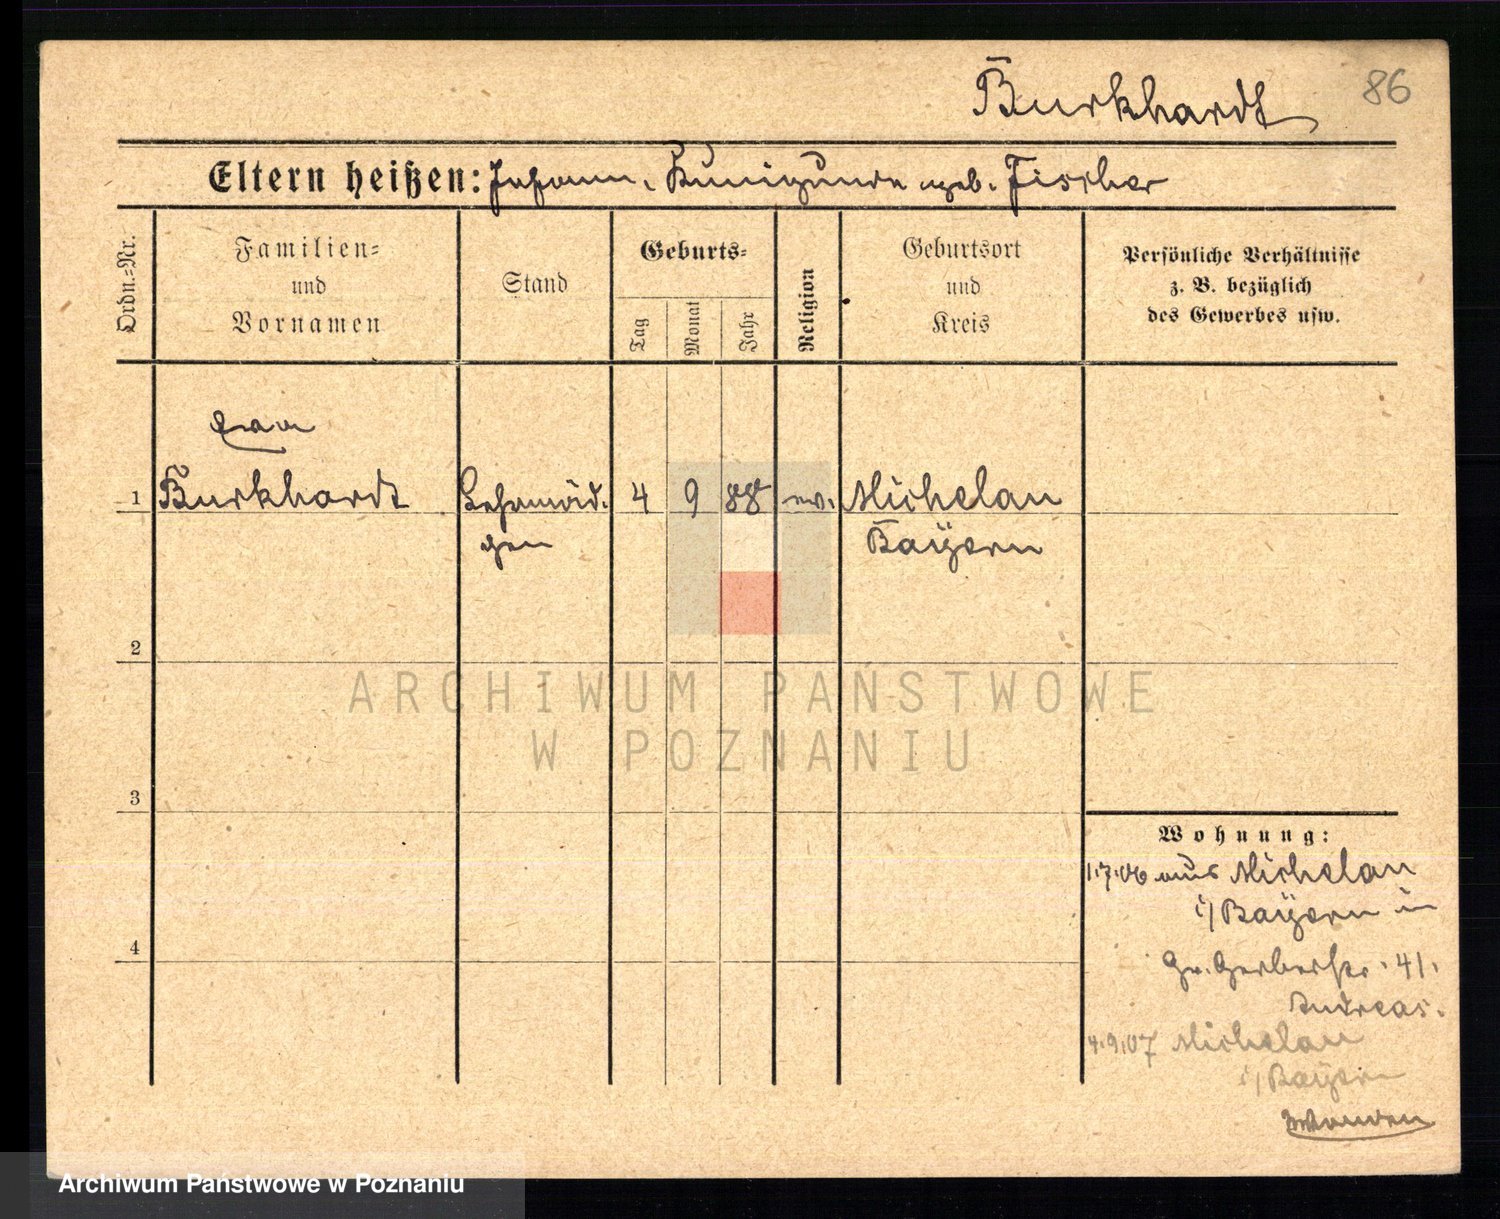 Burkhardt
86
Eltern heißen: Johann, Kunigunde geb. Fischer
Ordn.=Nr.
Familien=
und
Vornamen
Stand
Geburts=
Tag
Monat
Jahr
Religion
Geburtsort
und
Kreis
Persönliche Verhältnisse
z. B. bezüglich
des Gewerbes usw.
Eva
1 Burkhardt Lehrmäd- 4 9 88 ev. Michelau
gen Bayern
2
3
4
ARCHIWUM PAŃSTWOWE
W POZNANIU
Wohnung:
1.7.06 aus Michelau
i/ Bayern in
Gr. Gerberstr. 41.
Andreas.
4.9.07 Michelau
i/ Bayern
Archiwum Państwowe w Poznaniu